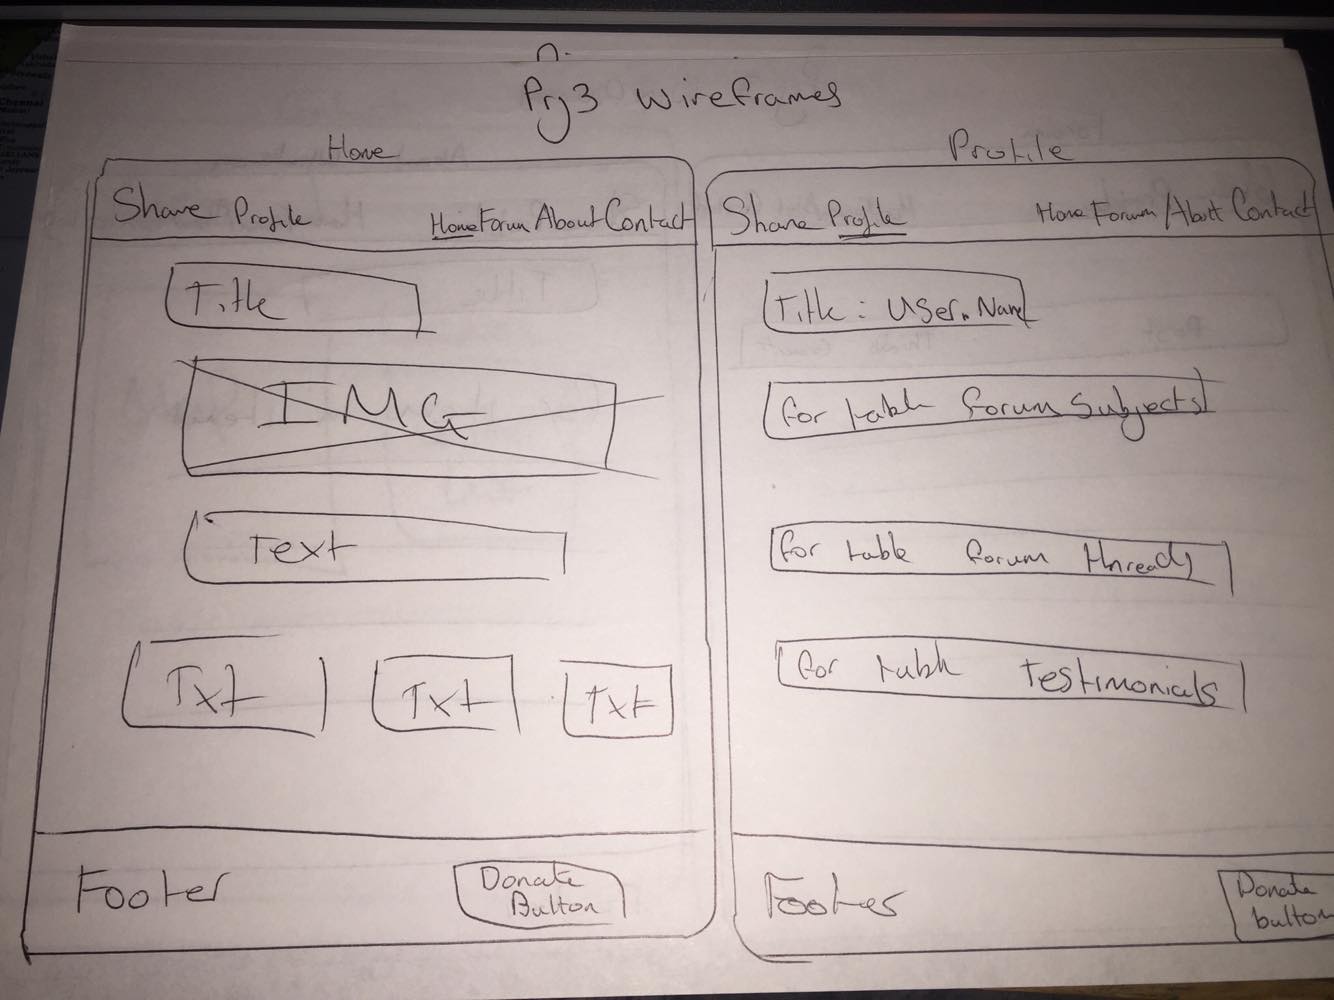 Prj3 Wireframes
Home
Share Profile Home Forum About Contact
Title
IMG
Text
Txt Txt Txt
Footer
Donate
Button
Profile
Share Profile Home Forum About Contact
Title: User.Name
for table forum Subjects
for table forum threads
for table Testimonials
Footer
Donate
button